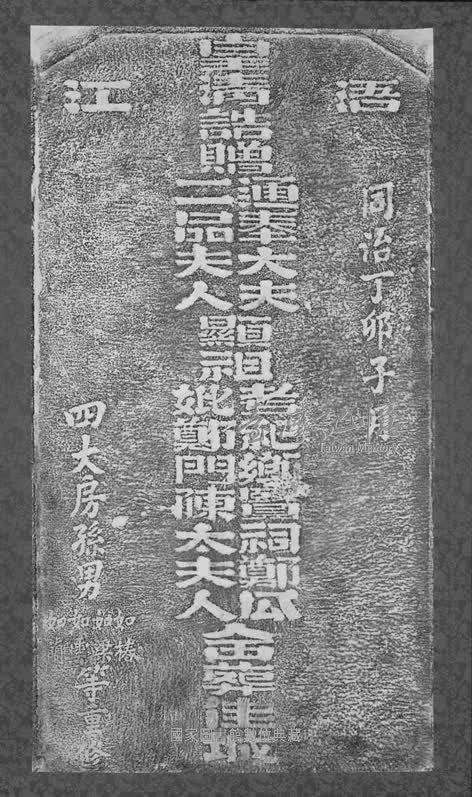 浯江
同治丁卯子月
皇清誥贈
通奉大夫
二品夫人
顯祖
考祀鄉賢祠鄭公
妣鄭門陳太夫人
葬佳城
四大房孫男
如椿
如樑
如
如
等重修
國家圖書館數位典藏